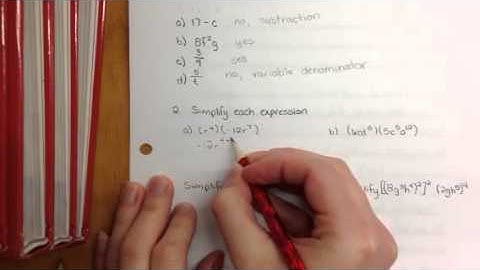 a) 17 - c no, subtraction
b) 8f²g yes
c) 3/9 yes
d) 5/t no, variable denominator
2. Simplify each expression
a) (r⁴)(-12r⁷) b) (6cd⁵)(5c⁵d²)
-12r
Simplify [(8g³h⁴)²]² (2gh⁵)⁴